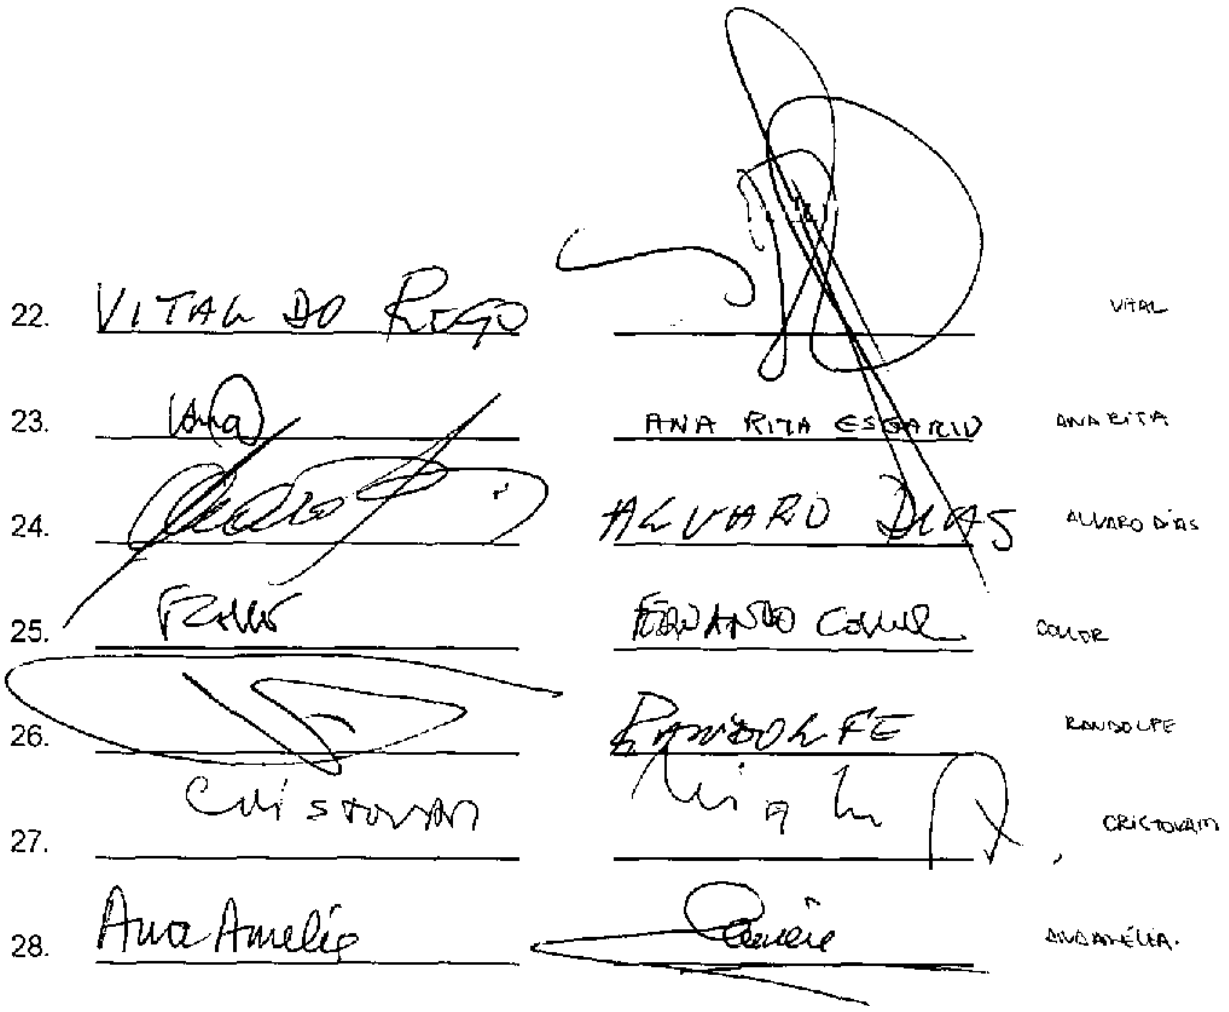 22. VITAL DO REGO VITAL
23. Ana ANA RITA ESGARIO ANA RITA
24. ALVARO DIAS ALVARO DIAS
25. FERNANDO COLLOR COLLOR
26. RANDOLFE RANDOLFE
27. CRISTOVAM CRISTOVAM
28. Ana Amelia ANA AMÉLIA.